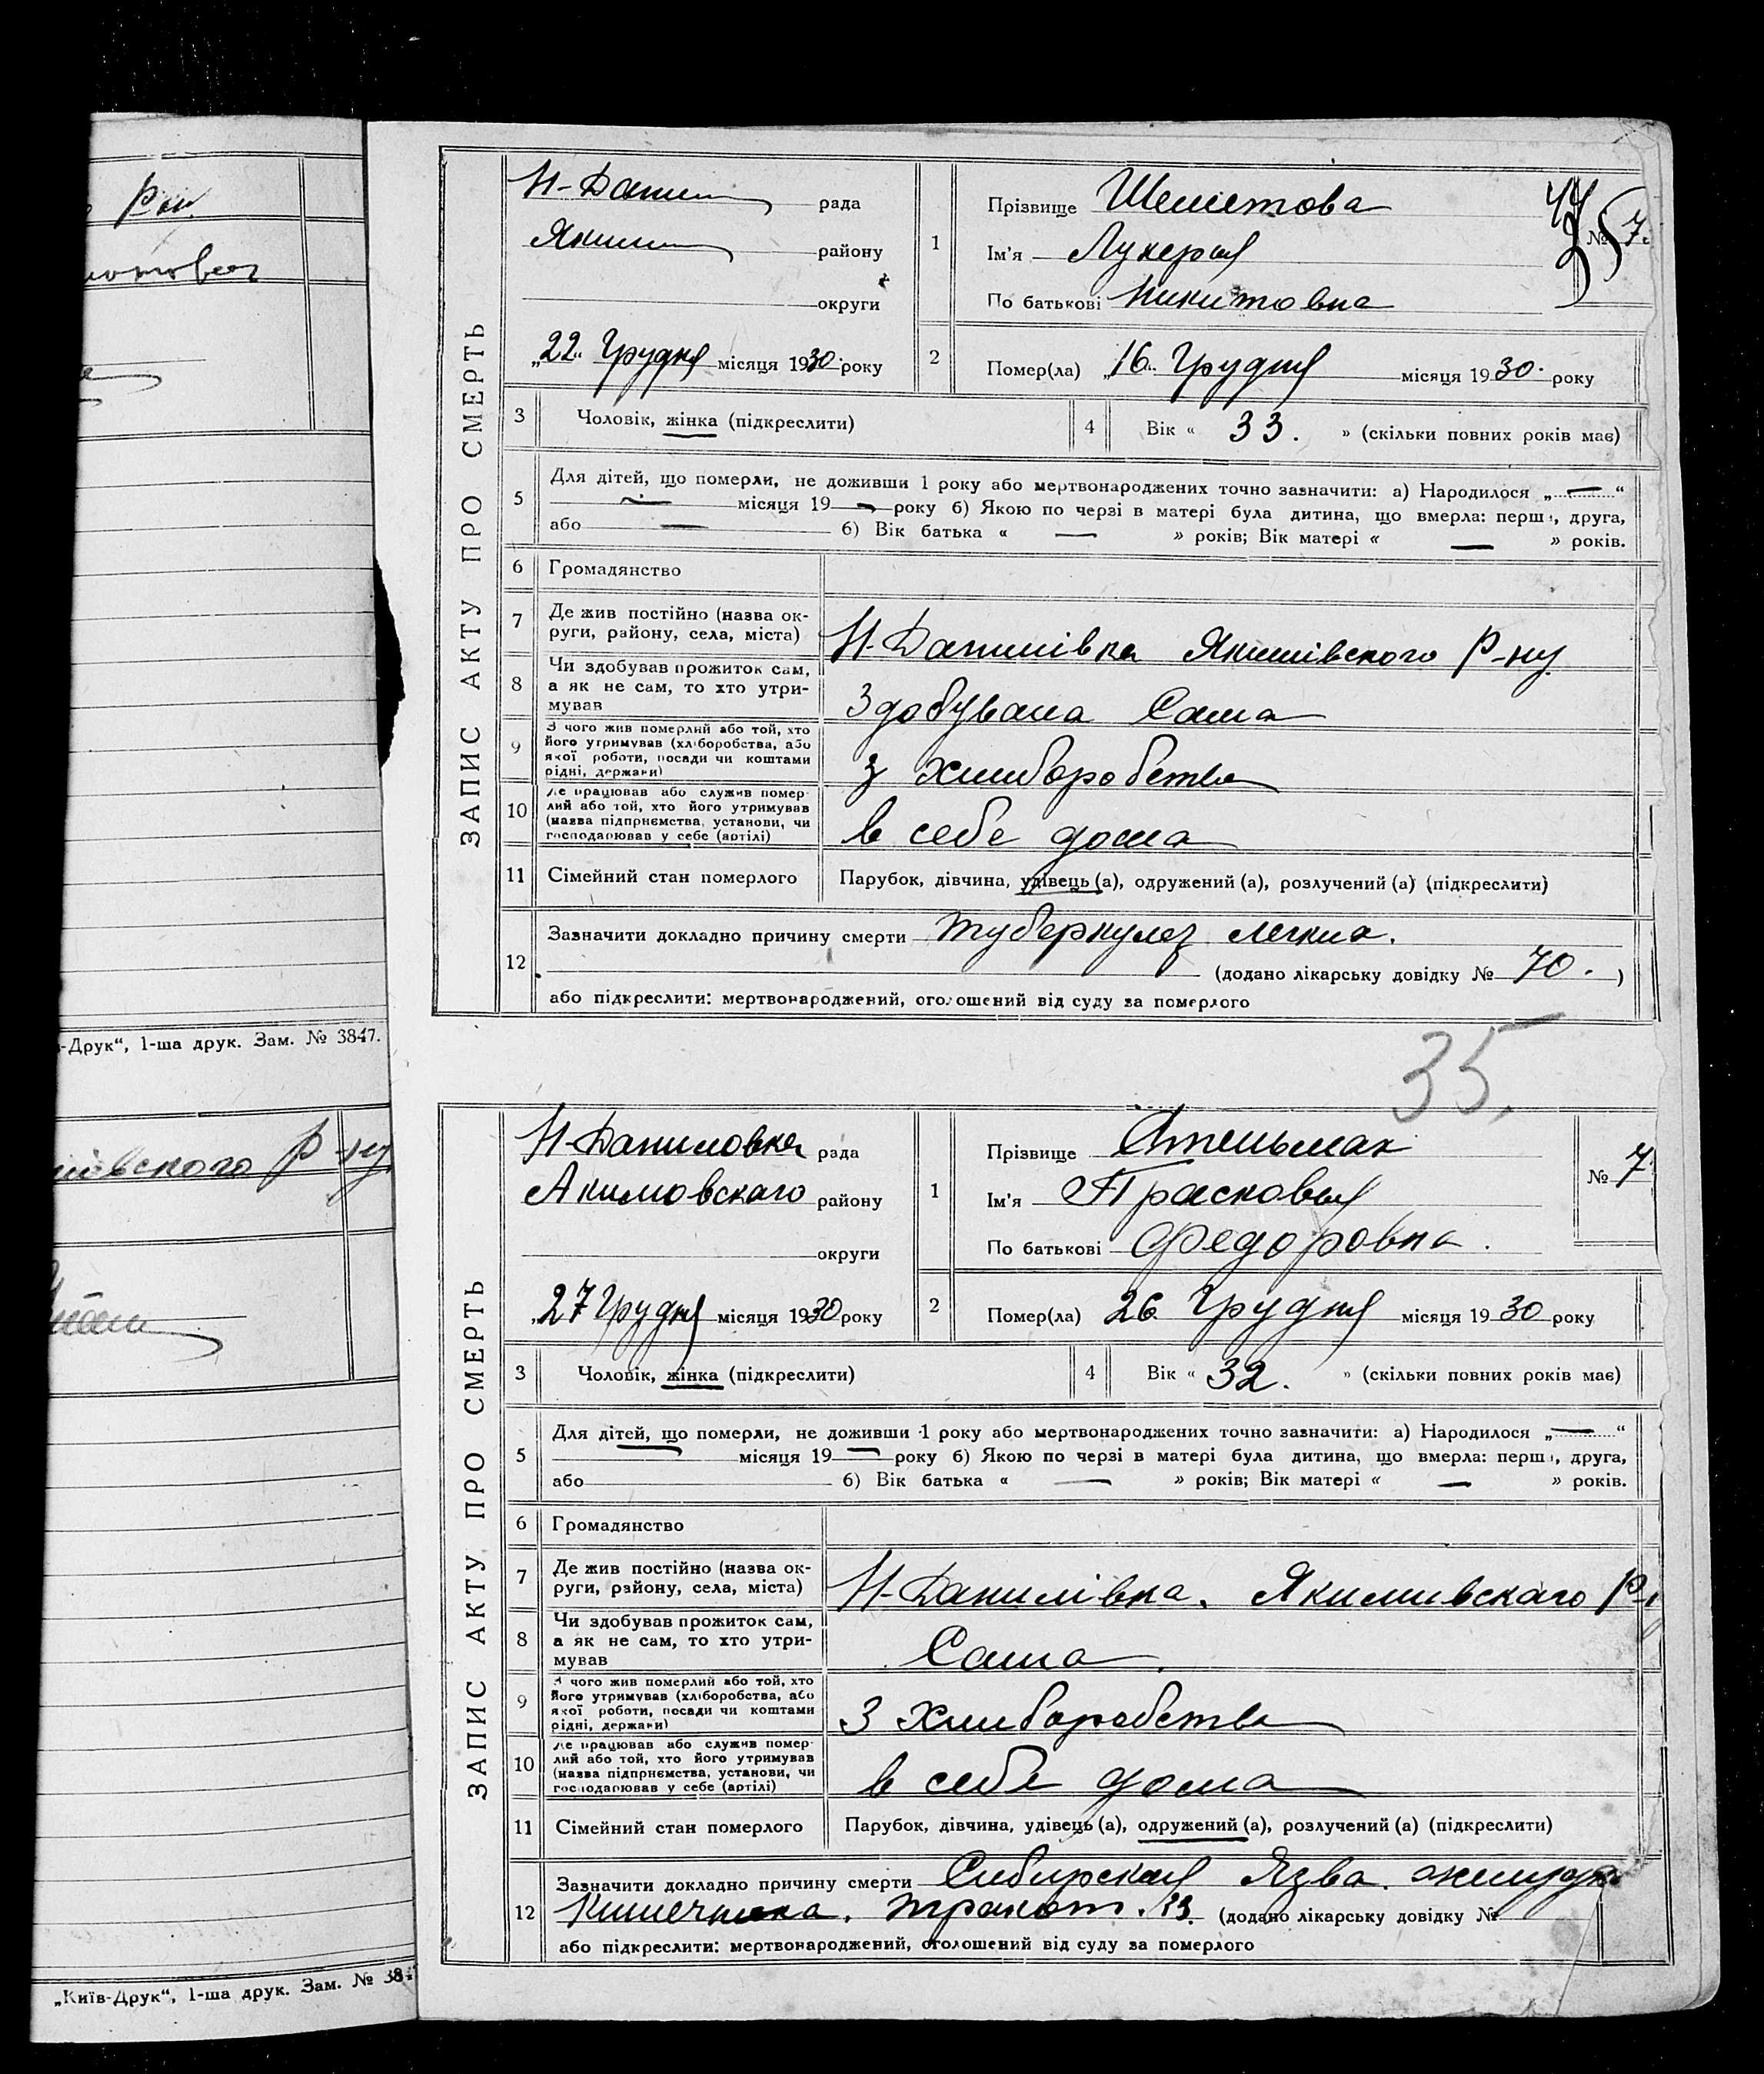 Рай.
-Друк“, 1-ша друк. Зам. № 3847.
івского Р-ну
„Київ-Друк“, 1-ша друк. Зам. № 384
ЗАПИС АКТУ ПРО СМЕРТЬ
Н-Данил рада
Яким району
округи
„22„ Грудня місяця 1930. року
1
Прізвище Шеметова
Ім'я Лукерья
По батькові Никитовна
№ 7.
2
Помер(ла) „16„ Грудня місяця 1930. року
3 Чоловік, жінка (підкреслити)
4 Вік « 33. » (скільки повних років має)
5 Для дітей, що померли, не доживши 1 року або мертвонароджених точно зазначити: а) Народилося „ — “
— місяця 19 — року б) Якою по черзі в матері була дитина, що вмерла: перша, друга,
або — б) Вік батька « — » років; Вік матері « — » років.
6 Громадянство
7 Де жив постійно (назва ок-
руги, району, села, міста)
Н-Данилівка Якимівского Р-ну
8 Чи здобував прожиток сам,
а як не сам, то хто утри-
мував
Здобувала Сама
9 З чого жив померлий або той, хто
його утримував (хліборобства, або
якої роботи, посади чи коштами
рідні, держави)
з хлиборобства
10 Де працював або служив помер-
лий або той, хто його утримував
(назва підприємства, установи, чи
господарював у себе (артілі)
в себе дома
11 Сімейний стан померлого
Парубок, дівчина, удівець (а), одружений (а), розлучений (а) (підкреслити)
12 Зазначити докладно причину смерти туберкулез легких.
(додано лікарську довідку № 70. )
або підкреслити: мертвонароджений, оголошений від суду за померлого
35.
ЗАПИС АКТУ ПРО СМЕРТЬ
Н-Даниловка рада
Акимовскаго району
округи
„27 Грудня місяця 1930 року
1
Прізвище Стельмах
Ім'я Прасковья
По батькові Федоровна.
№ 7
2
Помер(ла) 26 Грудня місяця 1930 року
3 Чоловік, жінка (підкреслити)
4 Вік « 32. » (скільки повних років має)
5 Для дітей, що померли, не доживши 1 року або мертвонароджених точно зазначити: а) Народилося „ — “
місяця 19 — року б) Якою по черзі в матері була дитина, що вмерла: перша, друга,
або б) Вік батька « — » років; Вік матері « — » років.
6 Громадянство
7 Де жив постійно (назва ок-
руги, району, села, міста)
Н-Данилівка. Якимивскаго Р-
8 Чи здобував прожиток сам,
а як не сам, то хто утри-
мував
Сама.
9 З чого жив померлий або той, хто
його утримував (хліборобства, або
якої роботи, посади чи коштами
рідні, держави)
З хлиборобства
10 Де працював або служив помер-
лий або той, хто його утримував
(назва підприємства, установи, чи
господарював у себе (артілі)
в себе дома
11 Сімейний стан померлого
Парубок, дівчина, удівець (а), одружений (а), розлучений (а) (підкреслити)
12 Зазначити докладно причину смерти Сибирская Язва.
тракт. (додано лікарську довідку №
або підкреслити: мертвонароджений, оголошений від суду за померлого